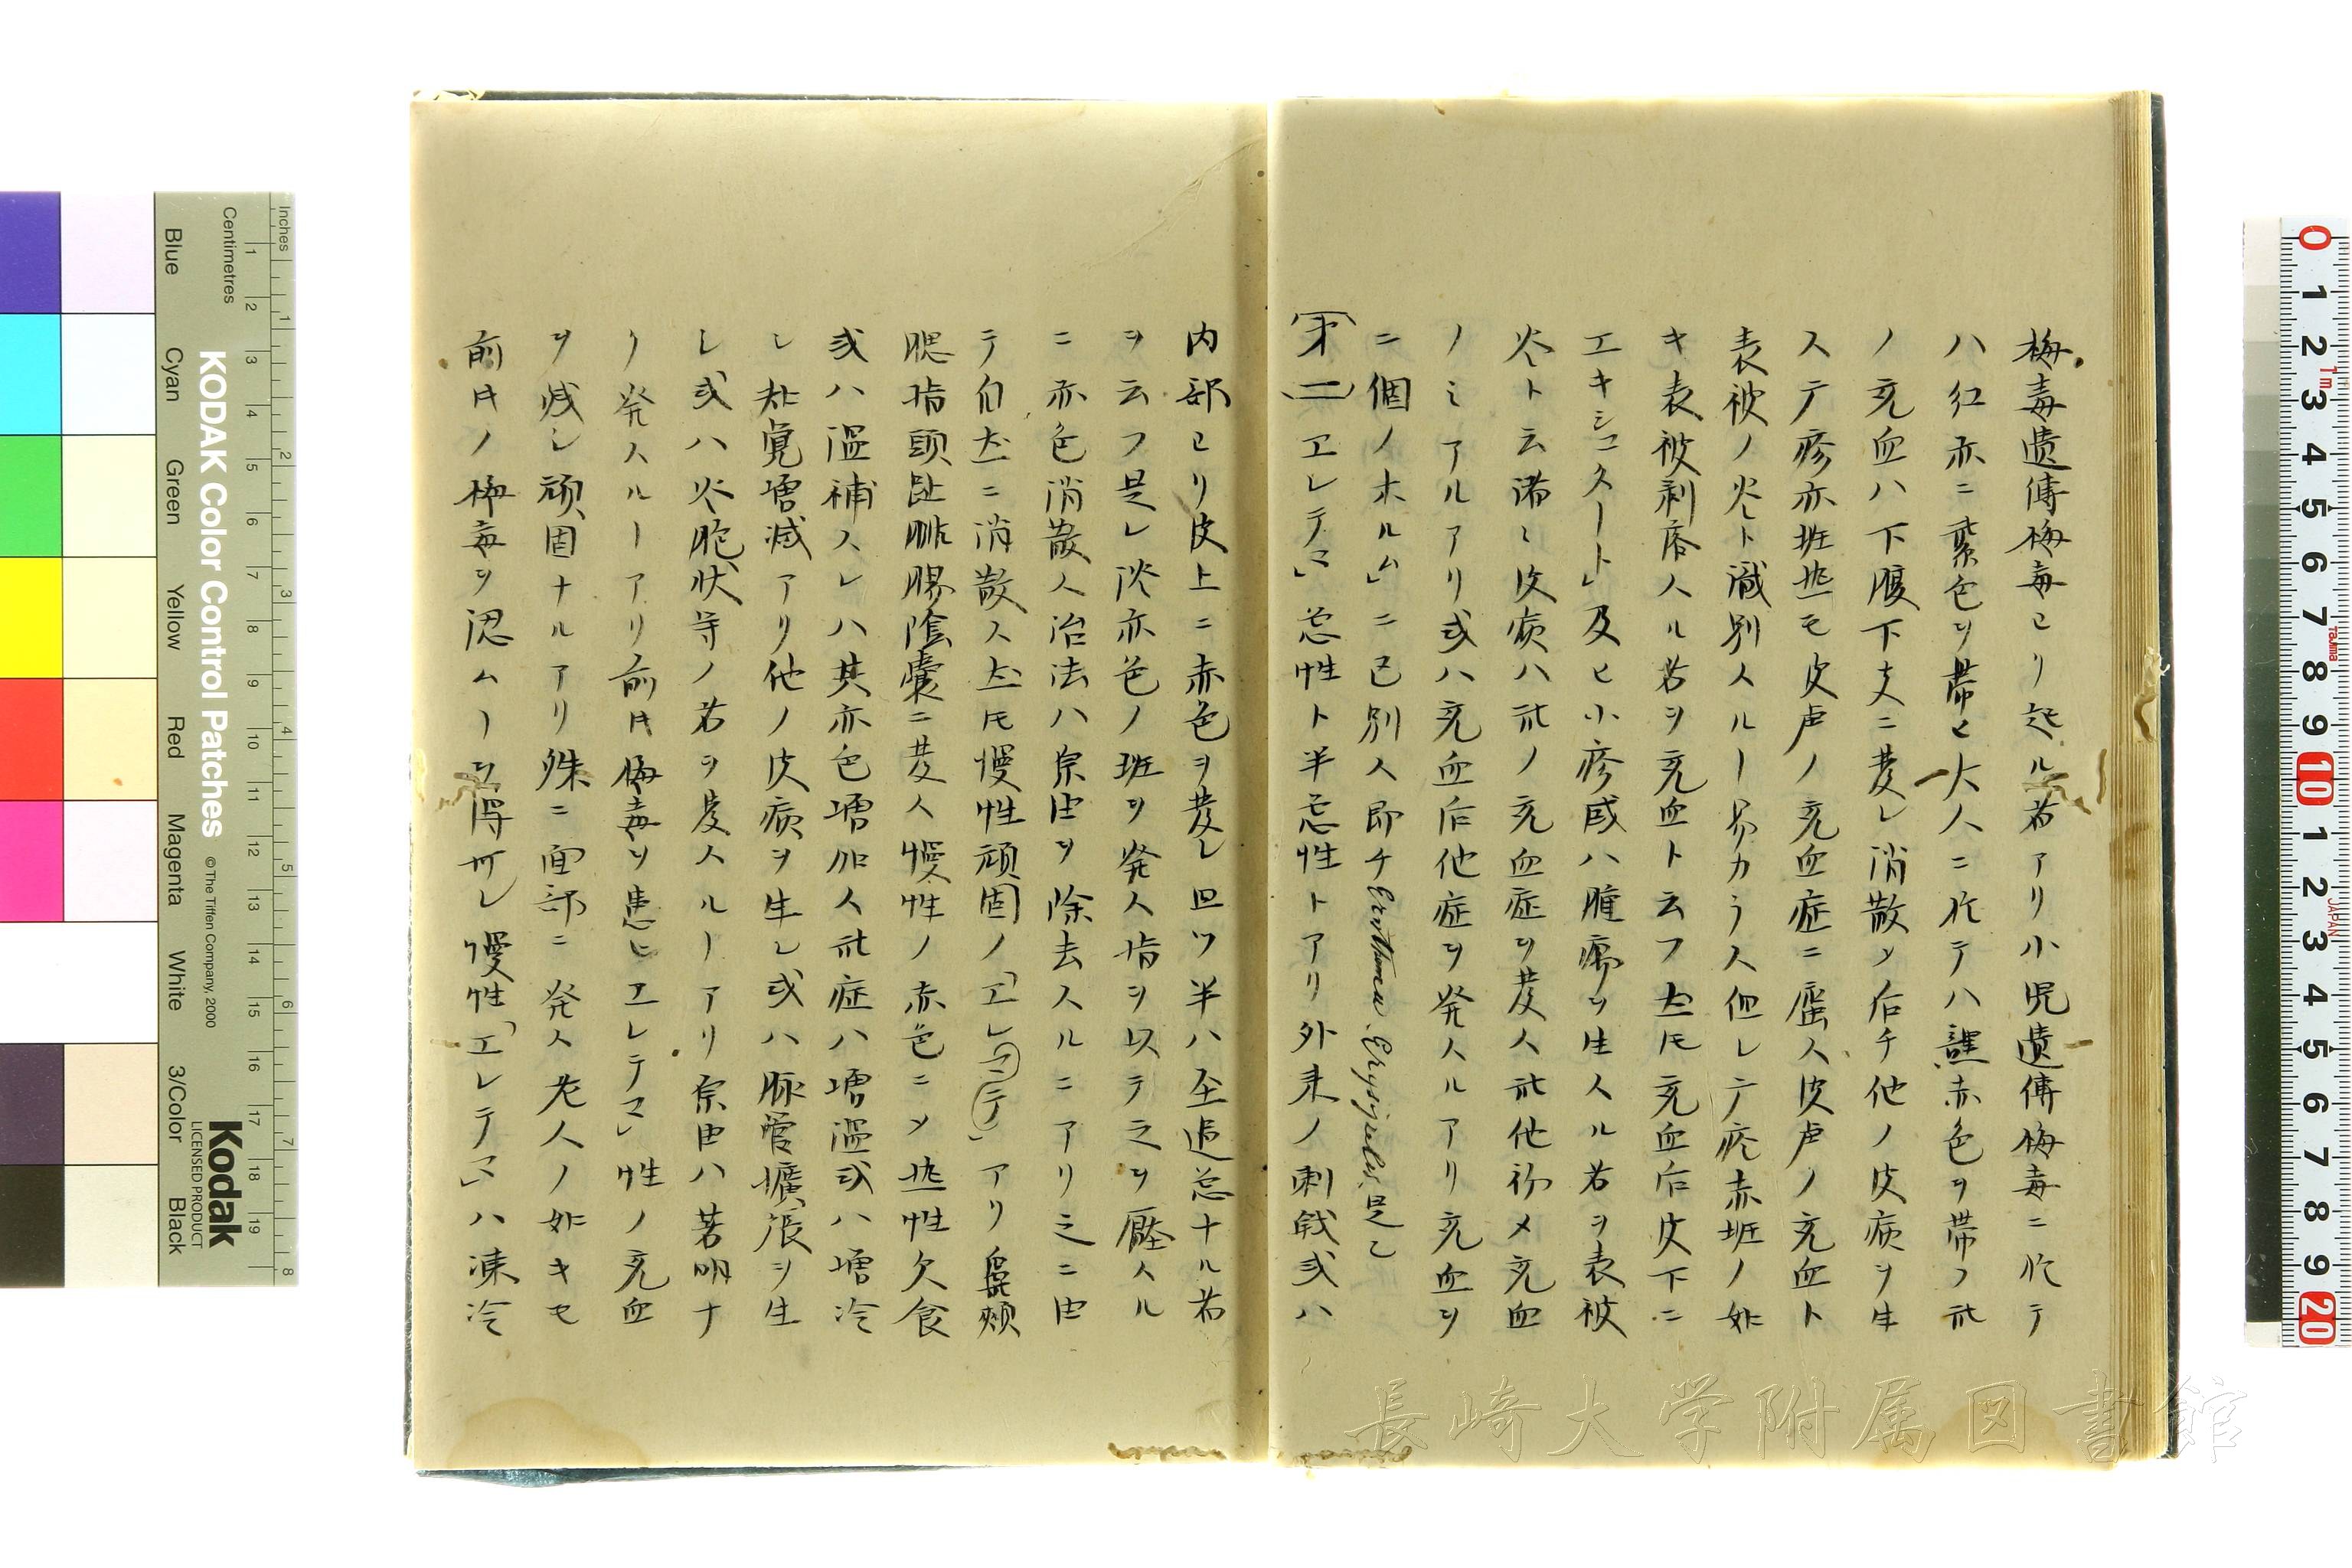 梅毒遺傳梅毒ヨリ起ル者アリ小児遺傳梅毒ニ於テ
ハ紅赤ニ紫色ヲ帯ヒ大人ニ於テハ赤色ヲ帯フ此
ノ充血ハ下腹下支ニ発シ消散シ后チ他ノ皮病ヲ生
ス丁疹赤斑共モ皮膚ノ充血症ニ属ス皮膚ノ充血ト
表被ノ炎ト識別スルヿ易カラス但シテ疹赤斑ノ如
キ表被剥落スル者ヲ充血ト云フ圡モ充血后皮下ニ
エキシュタート」及ヒ小疹或ハ腫瘍ヲ生スル者ヲ表被
炎ト云満ミ皮病ハ此ノ充血症ヲ発ス此他初メ充血
ノミアルアリ或ハ充血后他症ヲ発スルアリ充血ヲ
二個ノホルム」ニ已別ス即チErythema. Erysipelas.是乙
第二 エレテマ」急性ト半急性トアリ外来ノ刺戟或ハ
内部ヨリ皮上ニ赤色ヲ発シ且ツ半ハ至急ナル者
ヲ云フ是レ淡赤色ノ斑ヲ発ス指ヲ以テ之ヲ壓スル
ニ赤色消散ス治法ハ原由ヲ除去スルニアリ之ニ由
テ自ニ消散ス圡モ慢性頑固ノ「エレマテ」アリ鼻頬
腮指頭趾腓腸陰嚢ニ発ス慢性ノ赤色ニメ性欠食
或ハ温補スレハ其赤色増加ス此症ハ増温或ハ増冷
シ知覚増減アリ他ノ皮病ヲ生シ或ハ脈管擴張ヲ生
シ或ハ火胞状等ノ者ヲ発スルヿアリ原由ハ著明ナ
リ発スルヿアリ前キ梅毒ヲ患ヒエレテマ」性ノ充血
ヲ減シ頑固ナルアリ殊ニ面部ニ発ス老人ノ如キモ
前キノ梅毒ヲ認ムヿヲ得サレ慢性「エレテマ」ハ凍冷
KODAK Color Control Patches
© The Tiffen Company, 2000
Kodak
LICENSED PRODUCT
Inches
Centimetres
Blue
Cyan
Green
Yellow
Red
Magenta
White
3/Color
Black
長崎大学附属図書館